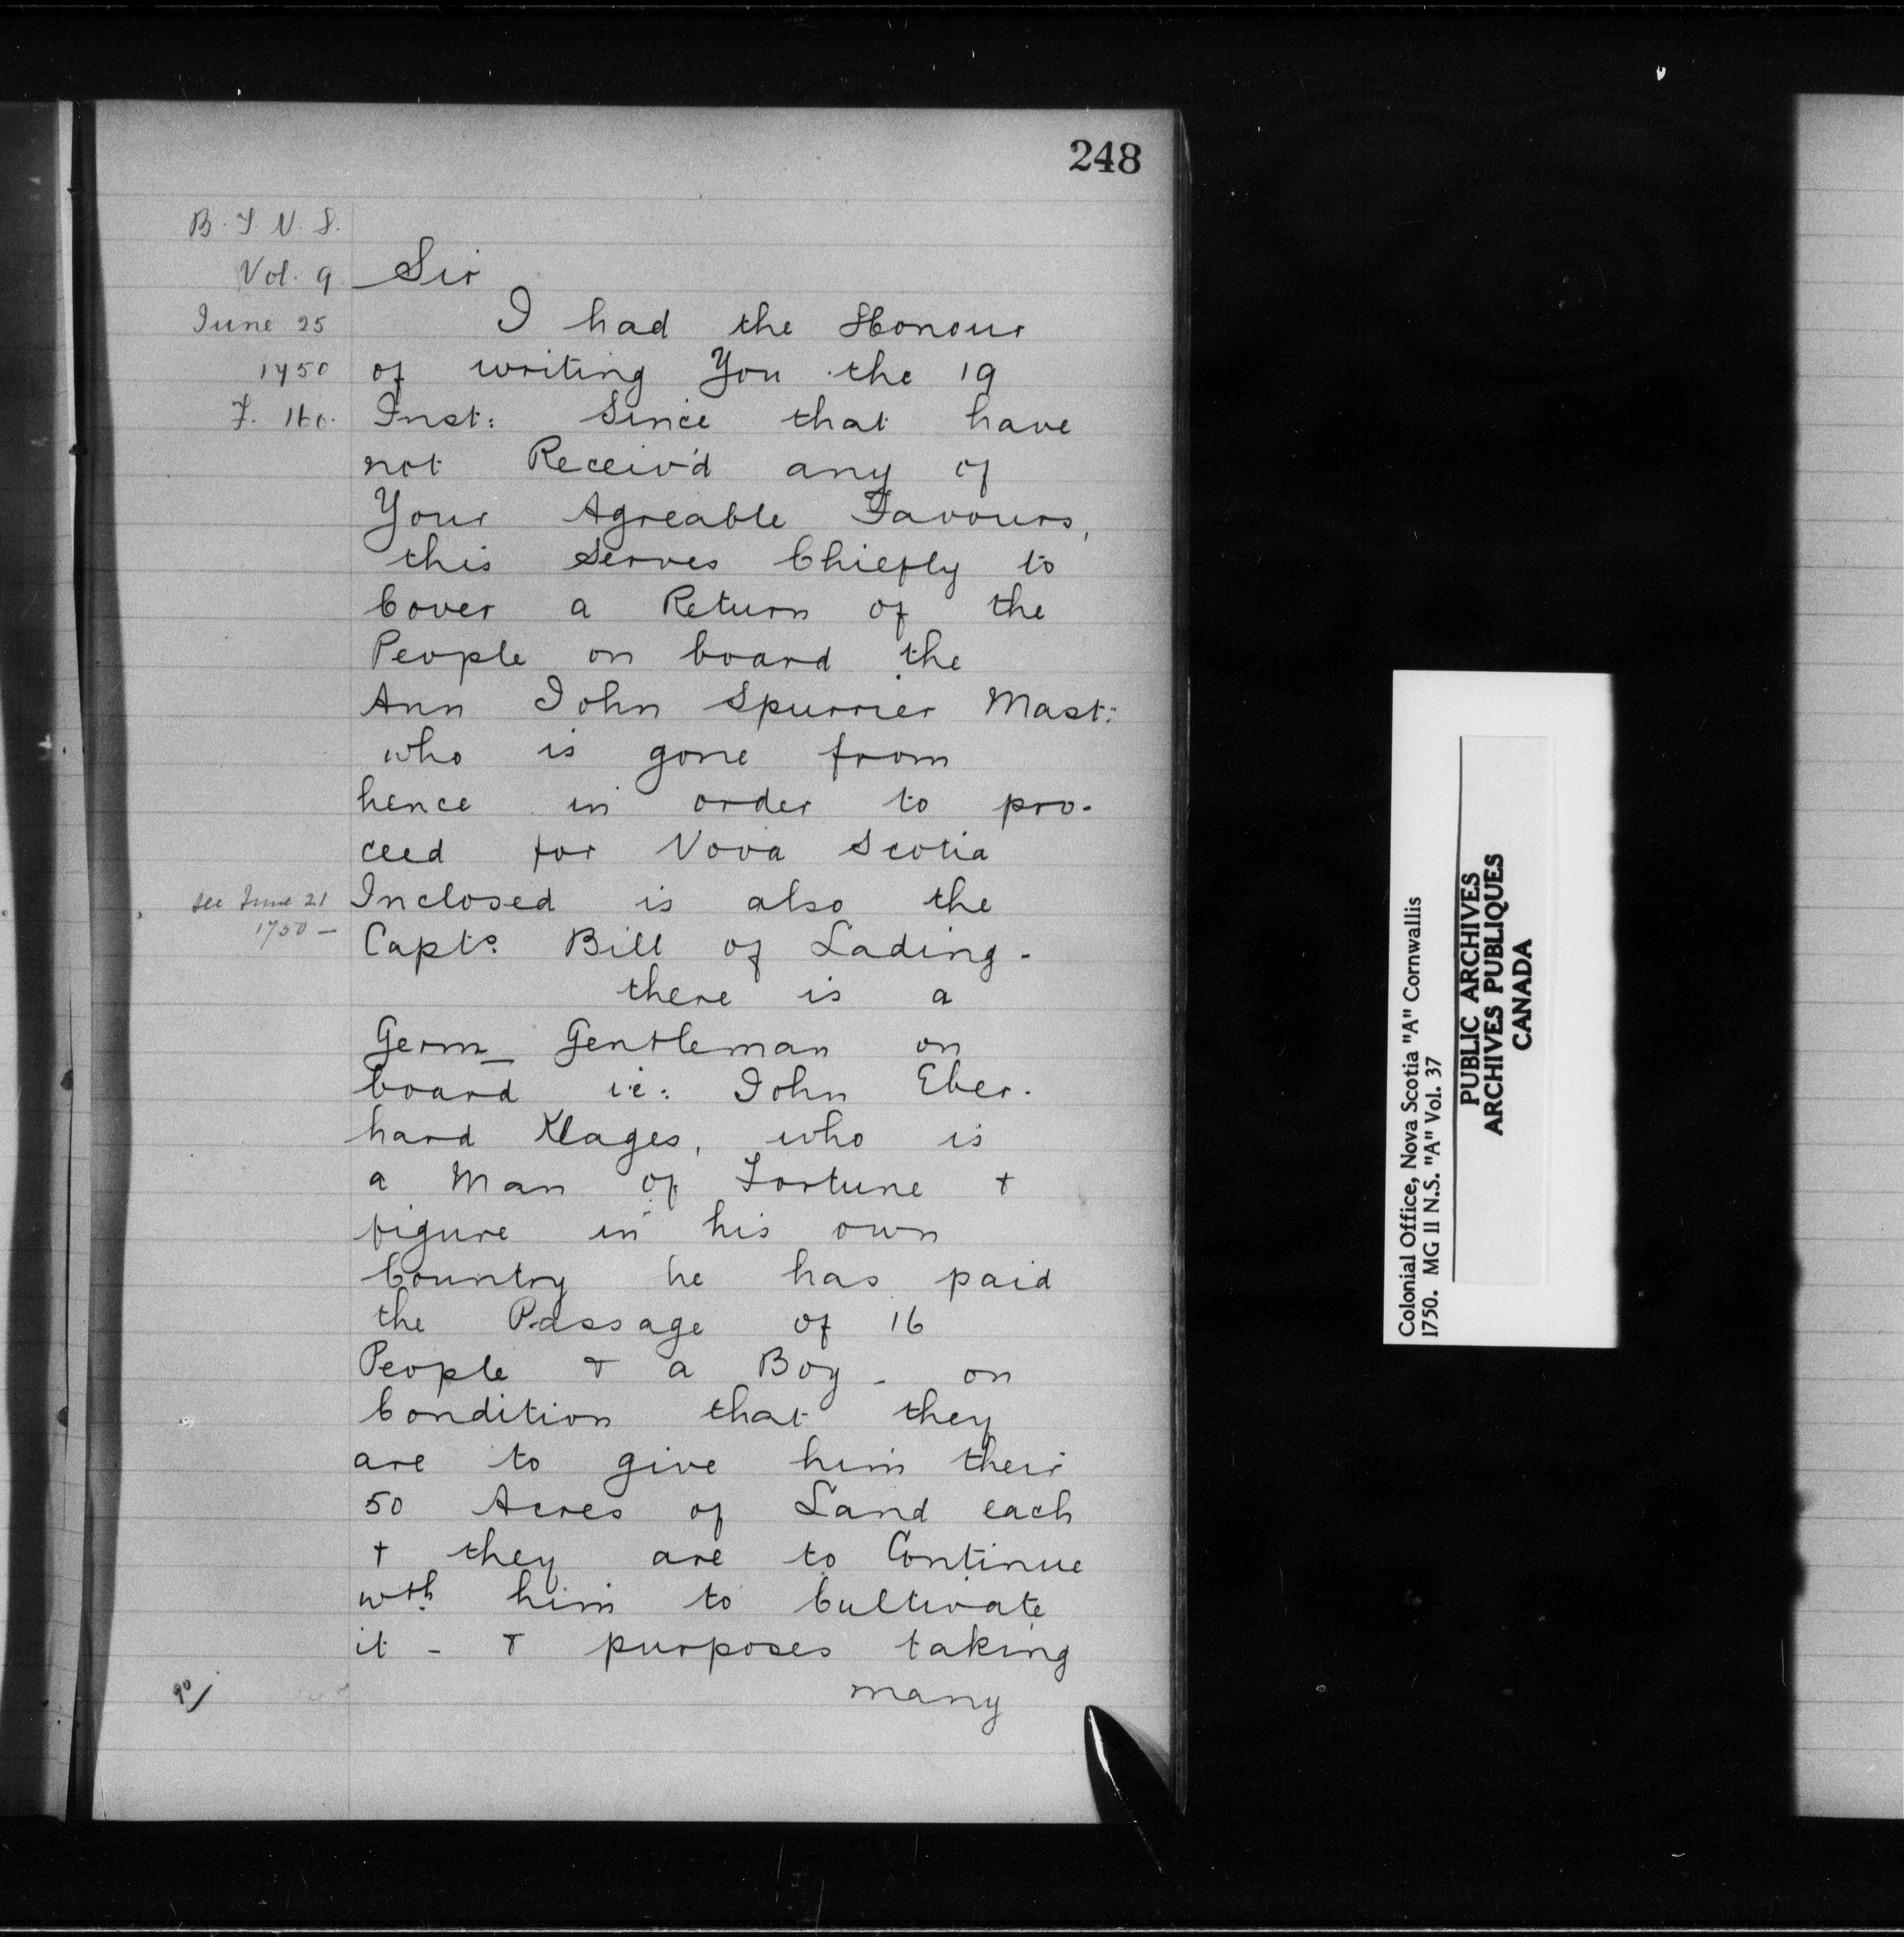 248
B. T. N. S.
Vol. 9
June 25
1750
F. 160.
Sir
I had the Honour
of writing You the 19
Inst: Since that have
not Receiv'd any of
Your Agreable Favours,
this Serves Chiefly to
Cover a Return of the
People on board the
Ann John Spurrier Mast:
who is gone from
hence in order to pro-
ceed for Nova Scotia
see June 21
1750 —
Inclosed is also the
Capts. Bill of Lading -
there is a
Germ_ Gentleman on
board ie: John Eber-
hard Klages, who is
a Man of Fortune &
figure in his own
Country he has paid
the Passage of 16
People & a Boy - on
Condition that they
are to give him their
50 Acres of Land each
& they are to Continue
wth. him to Cultivate
it - & purposes taking
many
90/
Colonial Office, Nova Scotia "A" Cornwallis
1750. MG 11 N.S. "A" Vol. 37
PUBLIC ARCHIVES
ARCHIVES PUBLIQUES
CANADA